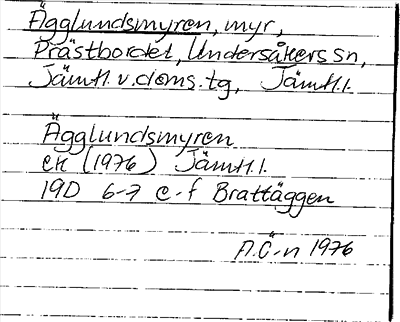 Ägglundsmyren, myr,
Prästbordet, Undersåkers sn,
Jämtl. v. doms. tg, Jämtl. l.
Ägglundsmyren
ek (1976) Jämtl. l.
19D 6-7 e-f Brattäggen
A.Ö-n 1976